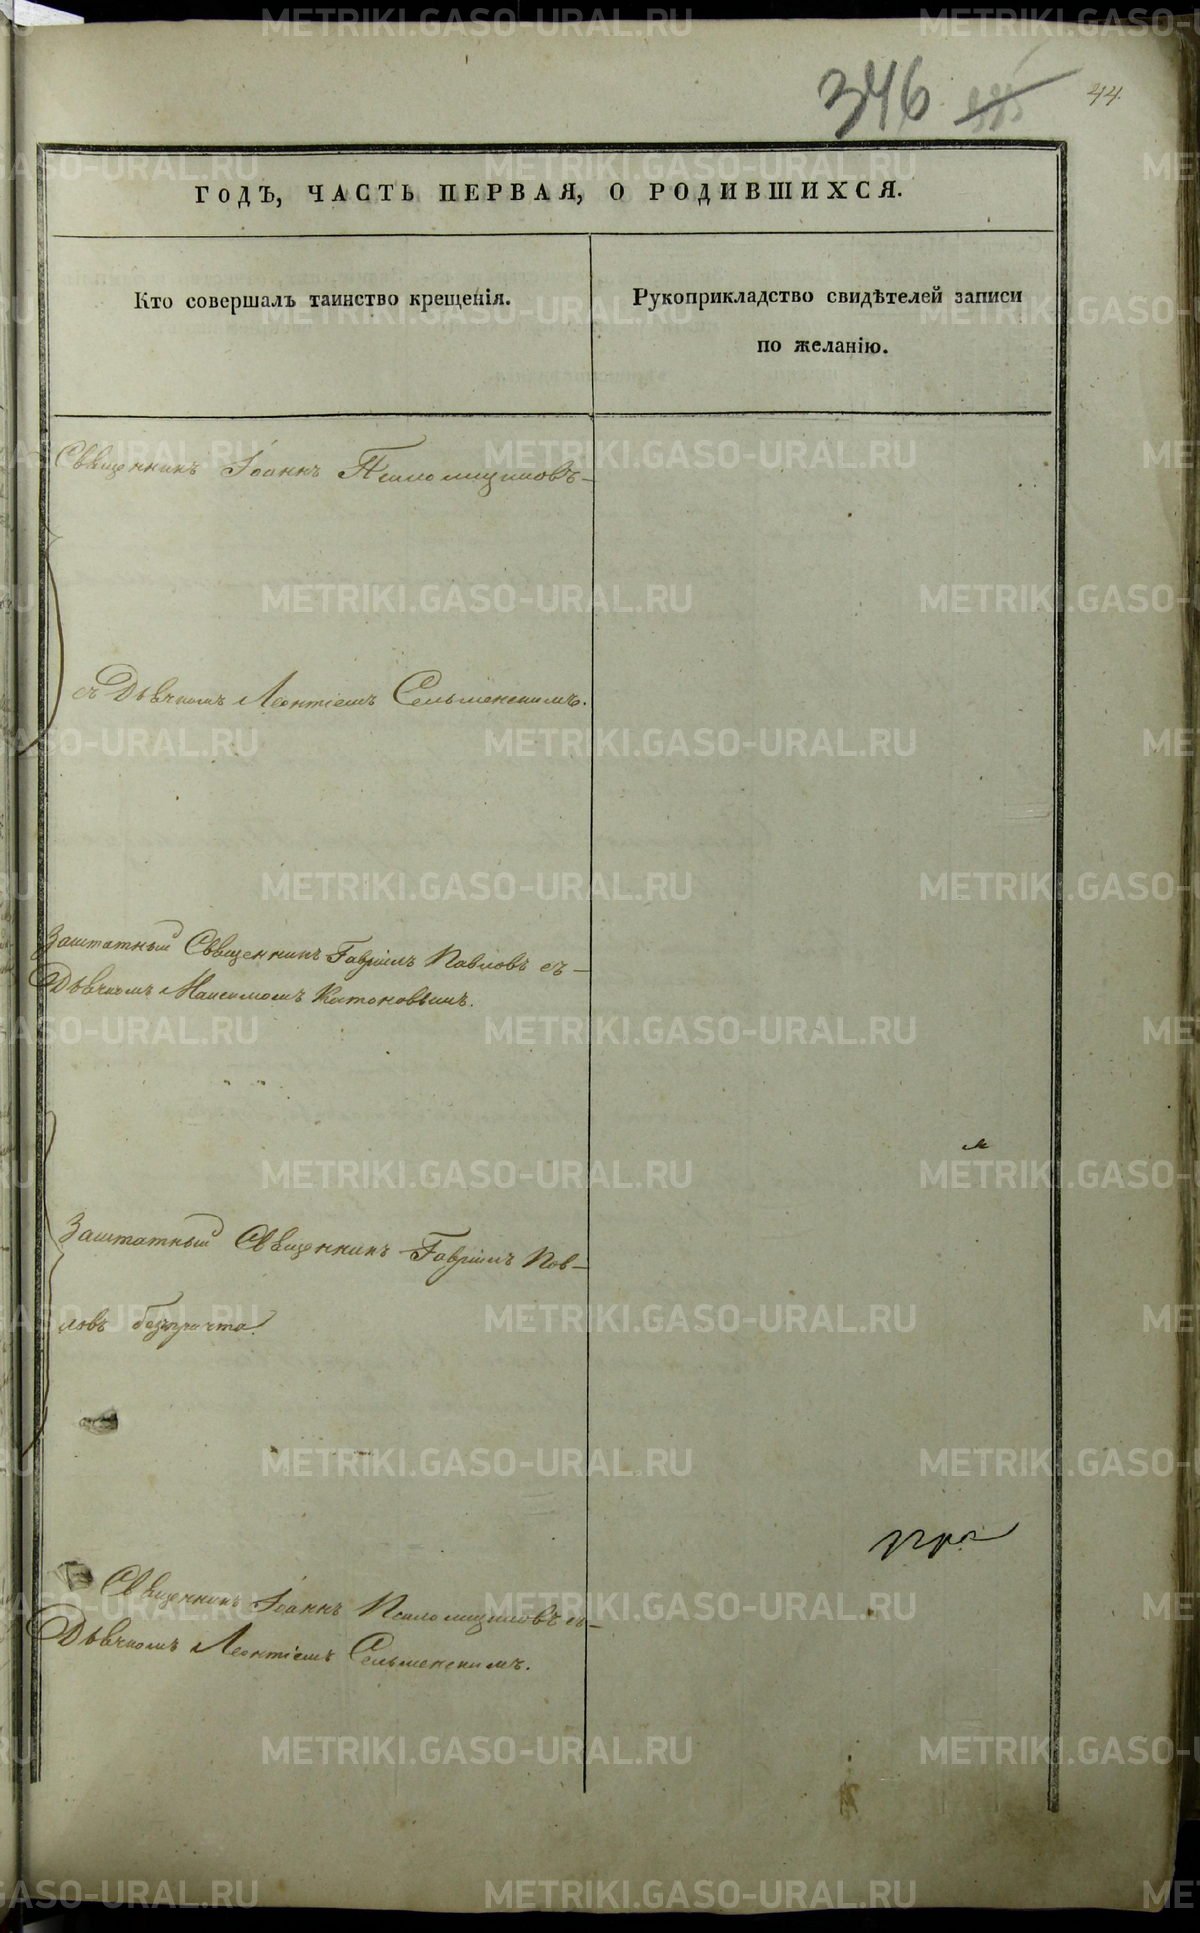 346 335 44.
ГОДЪ, ЧАСТЬ ПЕРВАЯ, О РОДИВШИХСЯ.
Кто совершалъ таинство крещенія.
Рукоприкладство свидѣтелей записи
по желанію.
Священникъ Іоаннъ Псаломщиковъ
съ Дьячкомъ Леонтіемъ Сельменскимъ.
Заштатный Священникъ Гавріилъ Павловъ съ
Дьячкомъ Максимомъ Китоновымъ.
Заштатный Священникъ Гавріилъ Пав-
ловъ безъ причта.
Священникъ Іоаннъ Псаломщиковъ съ
Дьячкомъ Леонтіемъ Сельменскимъ.
METRIKI.GASO-URAL.RU